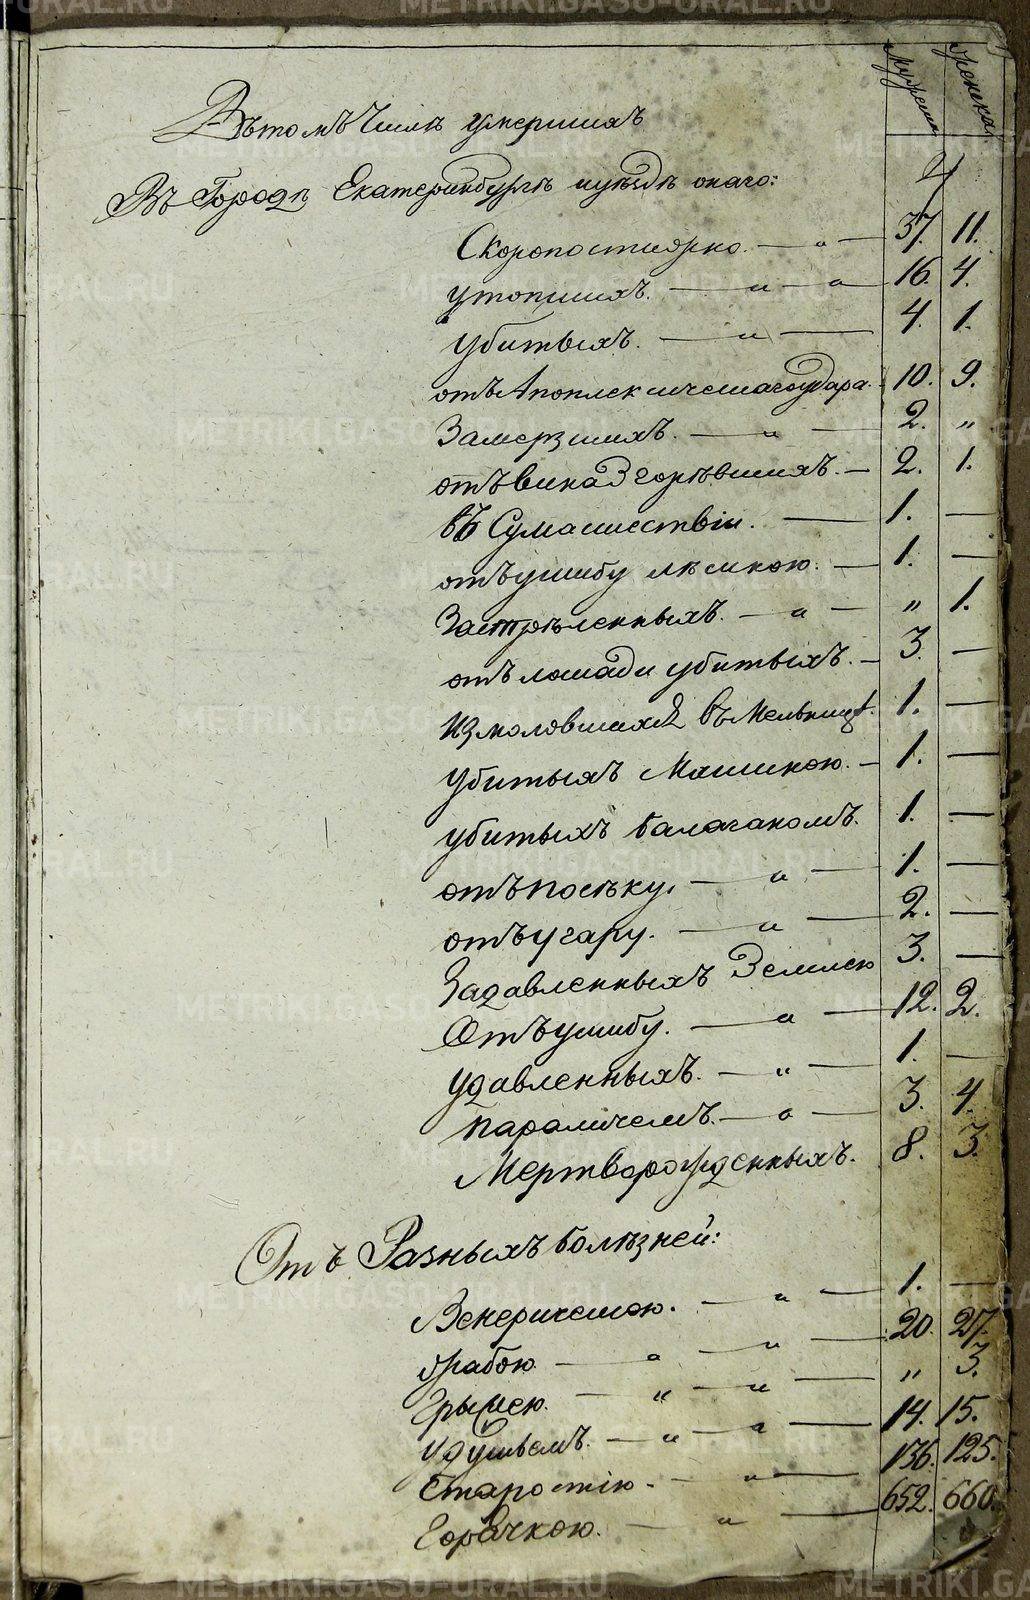 Мужеска Женска
Въ томъ числѣ умершихъ
Въ Городѣ Екатеринбургѣ и уѣздѣ онаго:
Скоропостижно. — „ — 37. 11.
утопшихъ. — „ — „ 16. 4.
убитыхъ. — „ — 4. 1.
отъ Апоплексическаго удара. 10. 9.
Замерзшихъ. — „ — 2. „
отъ вина Згорѣвшихъ. — 2. 1.
въ Сумашествіи. — 1. —
отъ ушибу лѣсиною. — 1. —
Застрѣленныхъ. — „ — „ 1.
отъ лошади убитыхъ. — 3. —
Измоловшихся въ Мельницѣ. 1. —
убитыхъ Машиною. — 1. —
убитыхъ балаганомъ. 1. —
отъ посѣку. — „ — 1. —
отъ угару. — „ — 2. —
Задавленныхъ Землею 3. —
Отъ ушибу. — „ — 12. 2.
удавленныхъ. — „ — 1. —
параличемъ. — „ — 3. 4.
Мертворожденныхъ. 8. 3.
Отъ Разныхъ болѣзней:
Венерическою. — „ — 1. —
Жабою — „ — „ — 20. 27.
Грыжею. — „ — „ — „ 3.
Удушьемъ. — „ — „ — 14. 15.
Старостію. — „ — 136. 125.
Горячкою. — „ — 652. 660.
METRIKI.GASO-URAL.RU